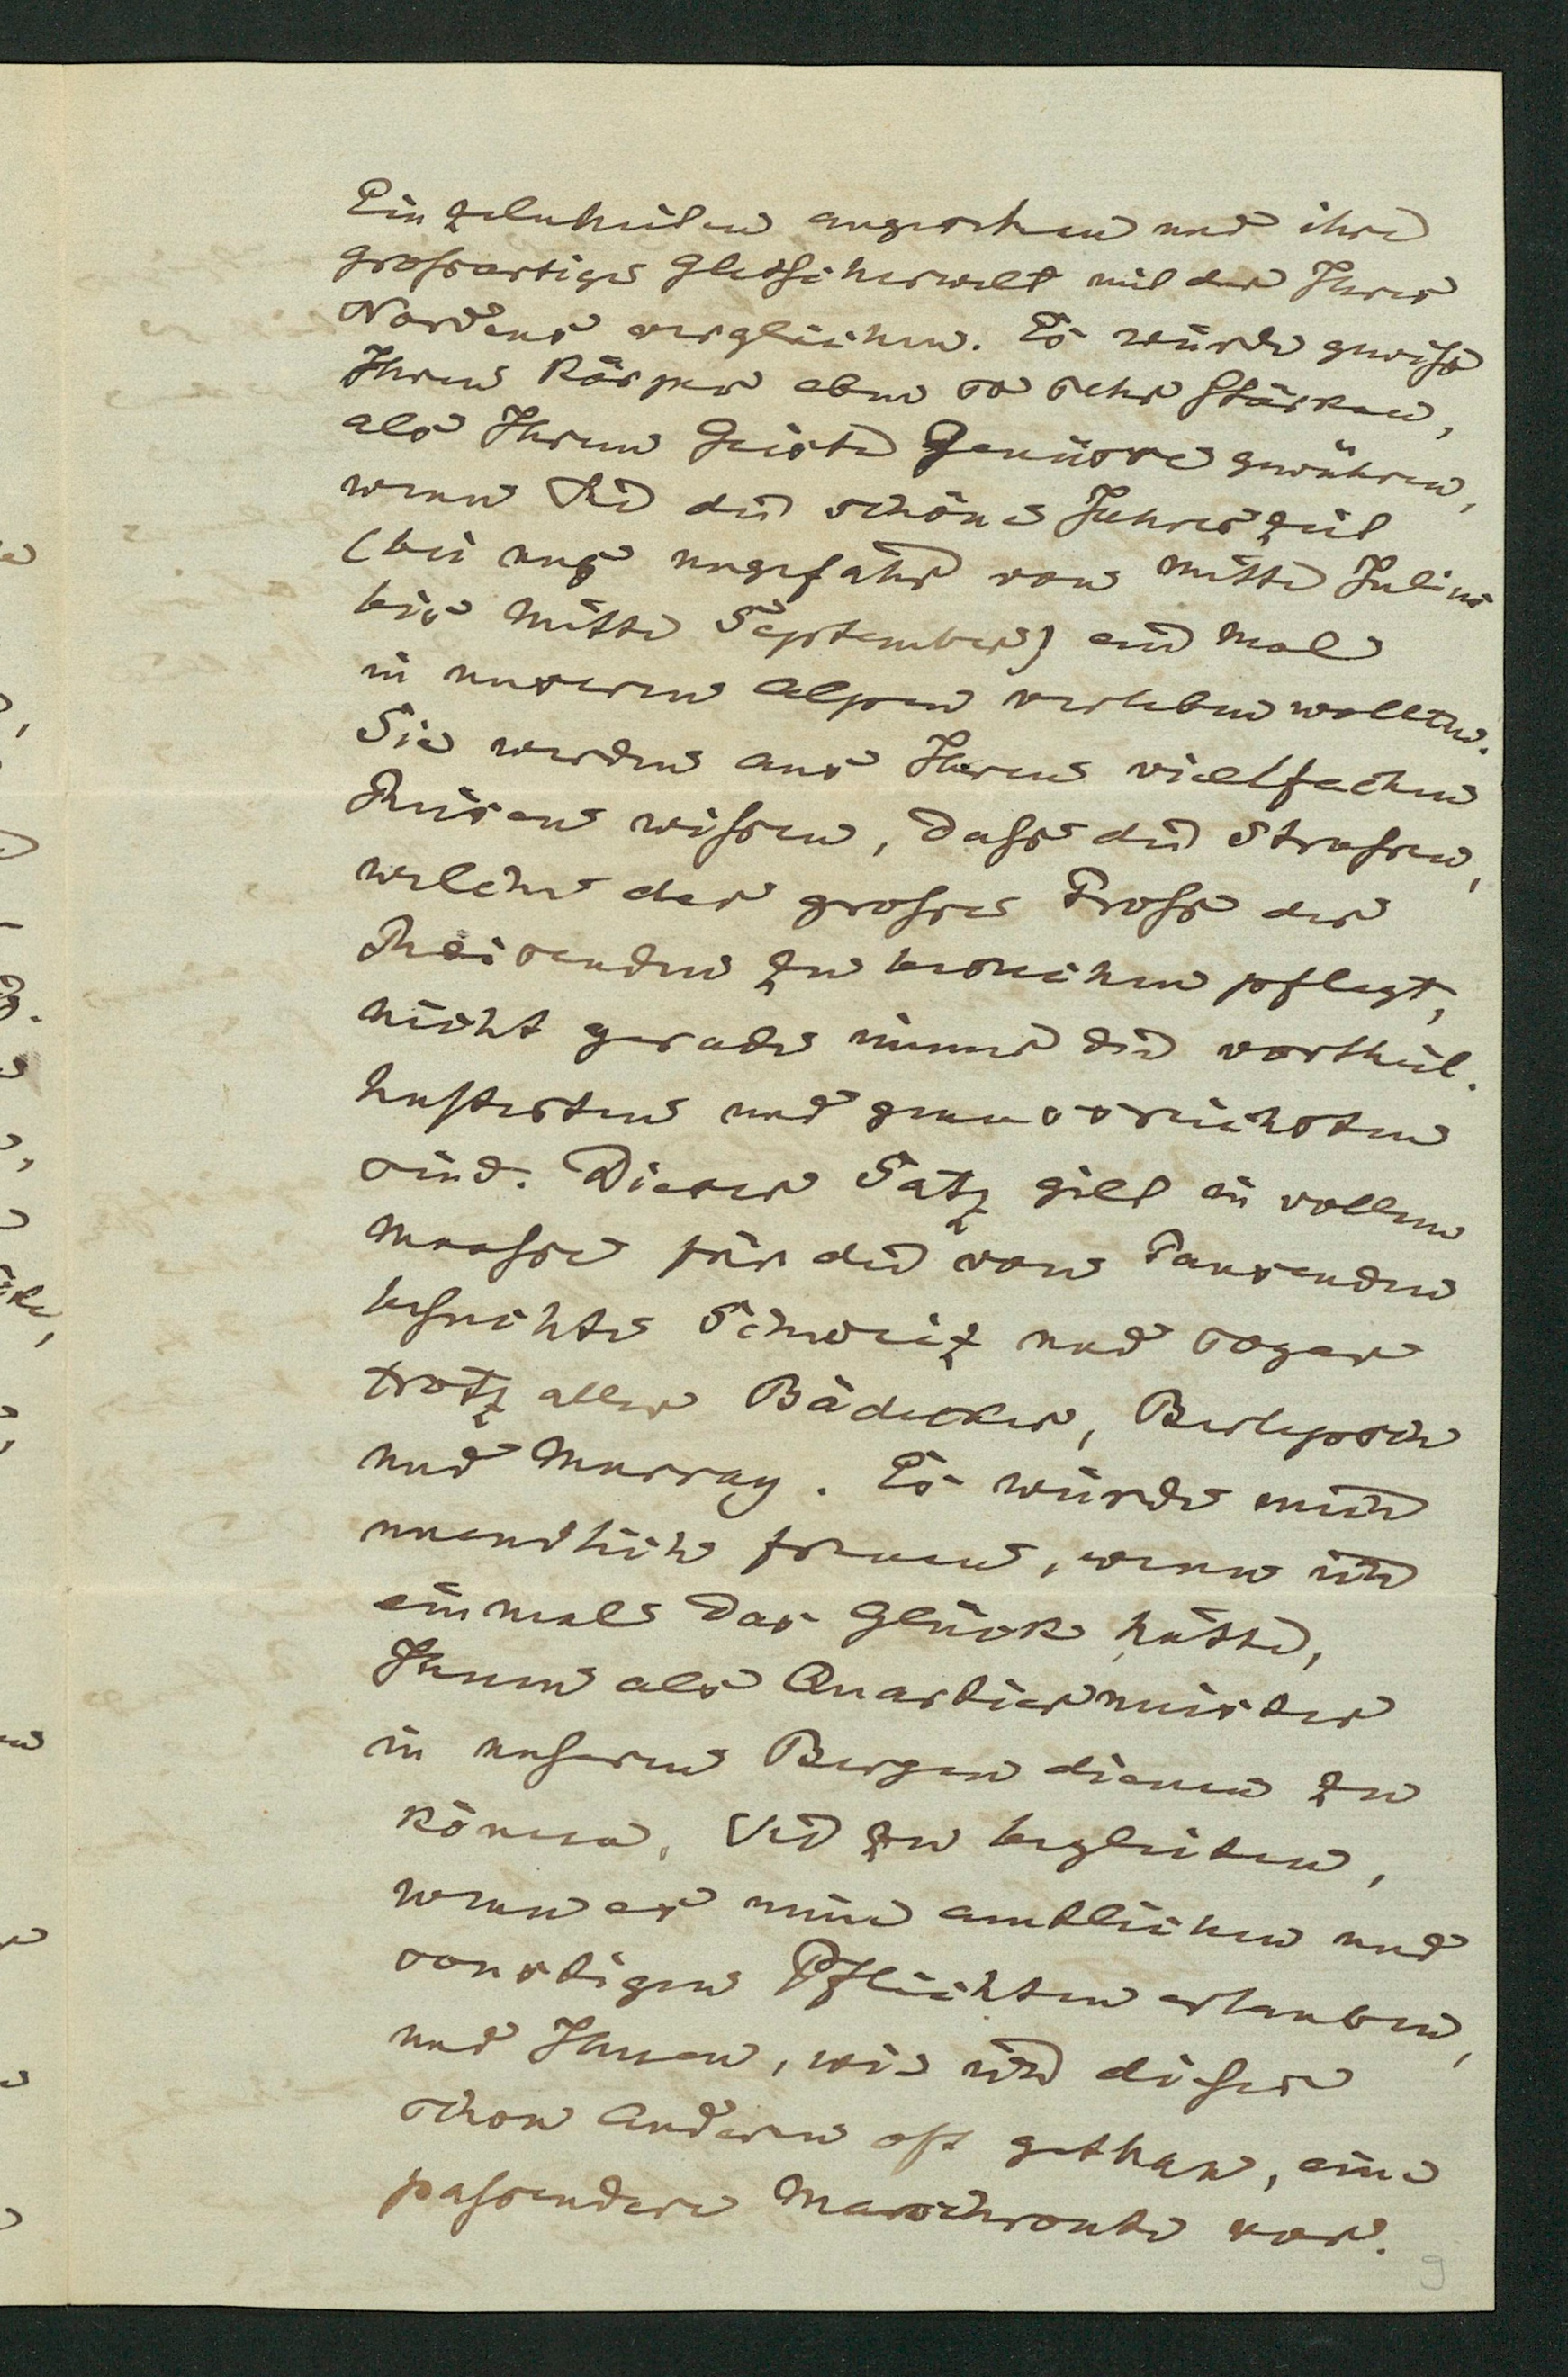 Einzelnheiten angesehen und ihre
grossartige Gletscherwelt mit der Ihres
Nordens verglichen. Es würde gewiss
Ihren Körper eben so sehr stärken,
als Ihrem Geiste Genüsse gewähren,
wenn Sie die schöne Jahreszeit
(bei uns ungefähr von Mitte Julius
bis Mitte September) ein Mal
in unseren Alpen verleben wollten.
Sie werden aus Ihren vielfachen
Reisen wissen, dass die Strassen,
welche der grosse Tross der
Reisenden zu besuchen pflegt,
nicht gerade immer die vortheil-
haftesten und genussreichsten
sind. Dieser Satz gilt in vollem
Maasse für die von Tausenden
besuchte Schweiz und sogar
trotz aller Bädecker, Berlepsch
und Murray. Es würde mich
unendlich freuen, wenn ich
einmal das Glück hätte,
Ihnen als Quartiermeister
in unseren Bergen dienen zu
können, Sie zu begleiten,
wenn es meine amtlichen und
sonstigen Pflichten erlauben,
und Ihnen, wie ich dieser
schon Anderen oft gethan, eine
passendere Marschroute vor.
9